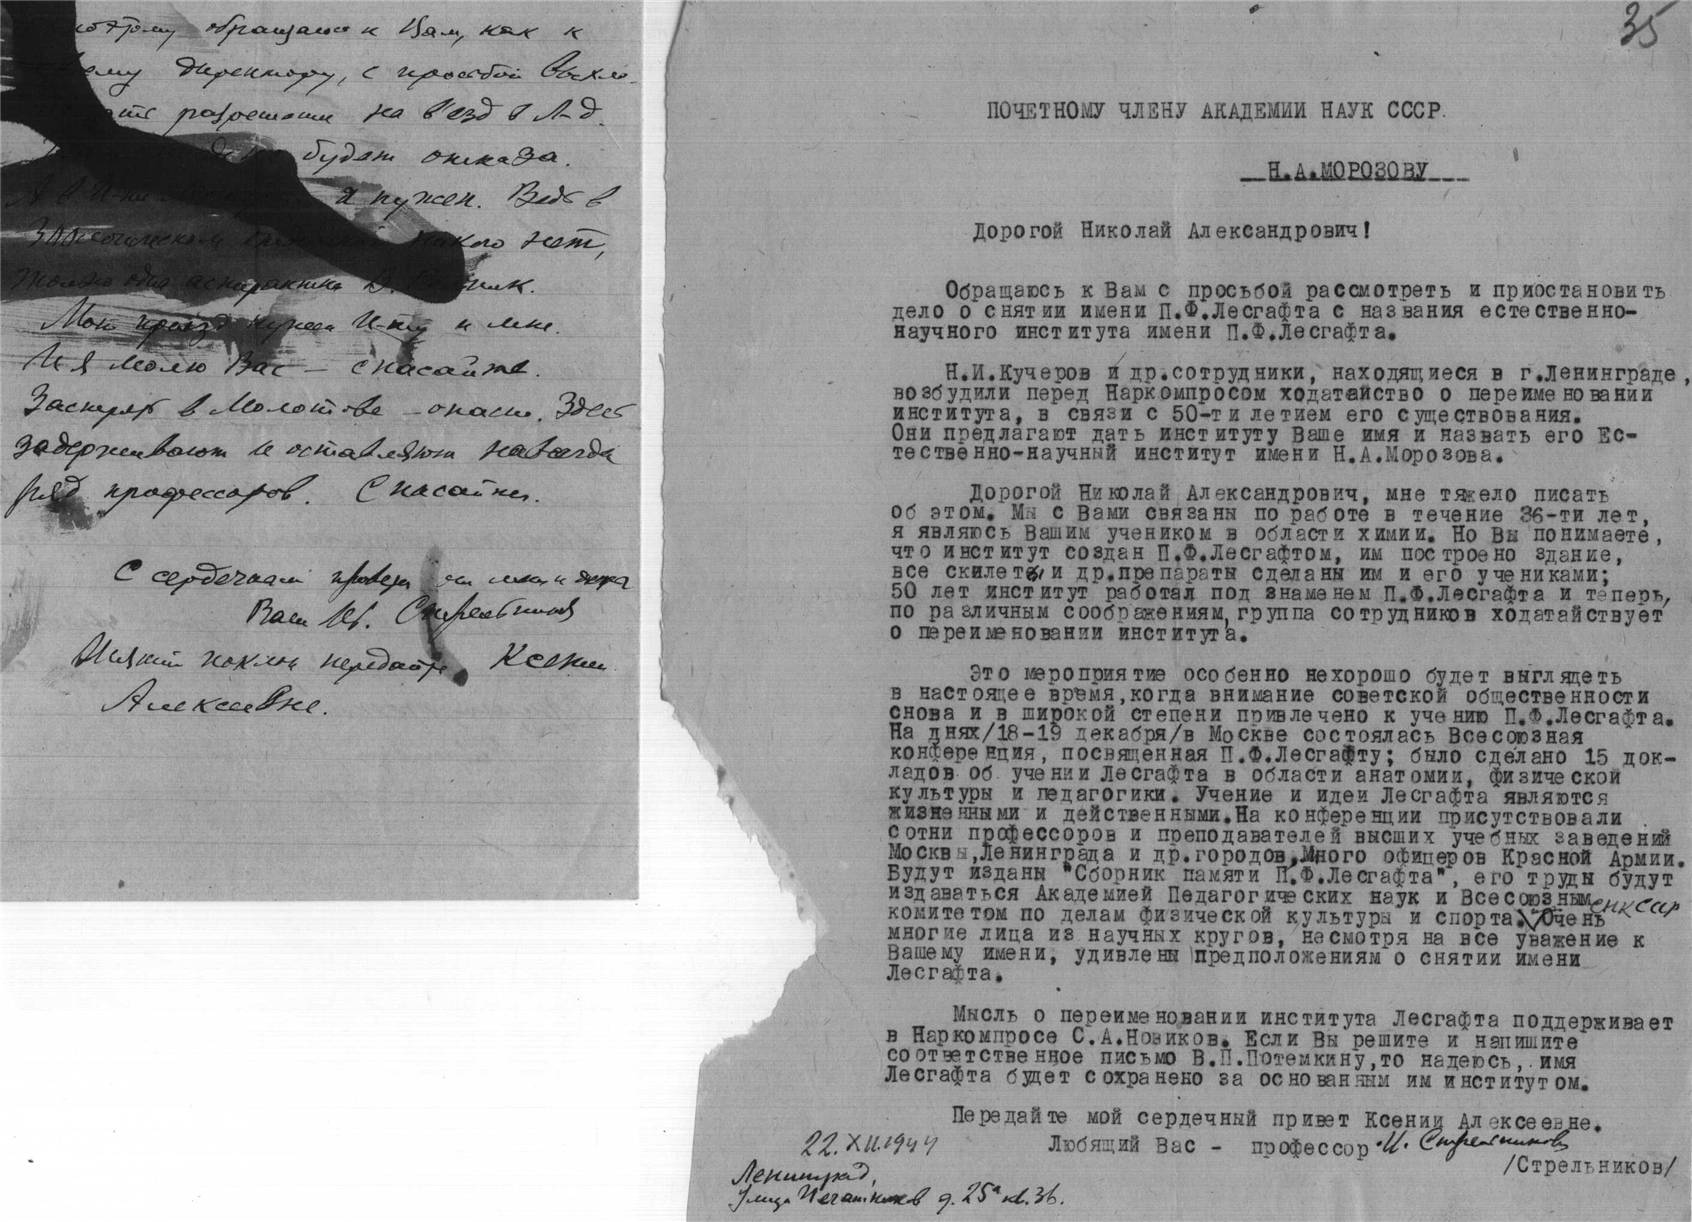 обращаюсь к Вам, как к
директору, с просьбой
разрешение на в'езд в Л-д.
будет отказа.
А в Ин-те я нужен. Ведь в
Зоологическом никого нет,
только одна аспирантка В.
Мой приезд нужен Ин-ту и мне.
И я молю Вас – спасайте.
Застрять в Молотове – опасно. Здесь
задерживают и оставляют навсегда
ряд профессоров. Спасайте.
С сердечным приветом
Ваш Ив. Стрельников
Низкий поклон передайте Ксении
Алексеевне.
35
ПОЧЕТНОМУ ЧЛЕНУ АКАДЕМИИ НАУК СССР.
Н.А.МОРОЗОВУ
Дорогой Николай Александрович!
Обращаюсь к Вам с просьбой рассмотреть и приостановить
дело о снятии имени П.Ф.Лесгафта с названия естественно-
научного института имени П.Ф.Лесгафта.
Н.И.Кучеров и др.сотрудники, находящиеся в г.Ленинграде,
возбудили перед Наркомпросом ходатайство о переименовании
института, в связи с 50-ти летием его существования.
Они предлагают дать институту Ваше имя и назвать его Ес-
тественно-научный институт имени Н.А.Морозова.
Дорогой Николай Александрович, мне тяжело писать
об этом. Мы с Вами связаны по работе в течение 36-ти лет,
я являюсь Вашим учеником в области химии. Но Вы понимаете,
что институт создан П.Ф.Лесгафтом, им построено здание,
все скилеты и др.препараты сделаны им и его учениками;
50 лет институт работал под знаменем П.Ф.Лесгафта и теперь,
по различным соображениям, группа сотрудников ходатайствует
о переименовании института.
Это мероприятие особенно нехорошо будет выглядеть
в настоящее время, когда внимание советской общественности
снова и в широкой степени привлечено к учению П.Ф.Лесгафта.
На днях/18-19 декабря/в Москве состоялась Всесоюзная
конференция, посвященная П.Ф.Лесгафту; было сделано 15 док-
ладов об учении Лесгафта в области анатомии, физической
культуры и педагогики. Учение и идеи Лесгафта являются
жизненными и действенными.На конференции присутствовали
сотни профессоров и преподавателей высших учебных заведений
Москвы,Ленинграда и др.городов,Много офицеров Красной Армии.
Будут изданы "Сборник памяти П.Ф.Лесгафта", его труды будут
издаваться Академией Педагогических наук и Всесоюзным
комитетом по делам физической культуры и спорта. СНКСССР Очень
многие лица из научных кругов, несмотря на все уважение к
Вашему имени, удивлены предположениям о снятии имени
Лесгафта.
Мысль о переименовании института Лесгафта поддерживает
в Наркомпросе С.А.Новиков. Если Вы решите и напишите
соответственное письмо В.П.Потемкину,то надеюсь, имя
Лесгафта будет сохранено за основанным им институтом.
Передайте мой сердечный привет Ксении Алексеевне.
22.XII.1944 Любящий Вас - профессор И. Стрельников
/Стрельников/
Ленинград,
улица Печатников д. 25а кв. 36.